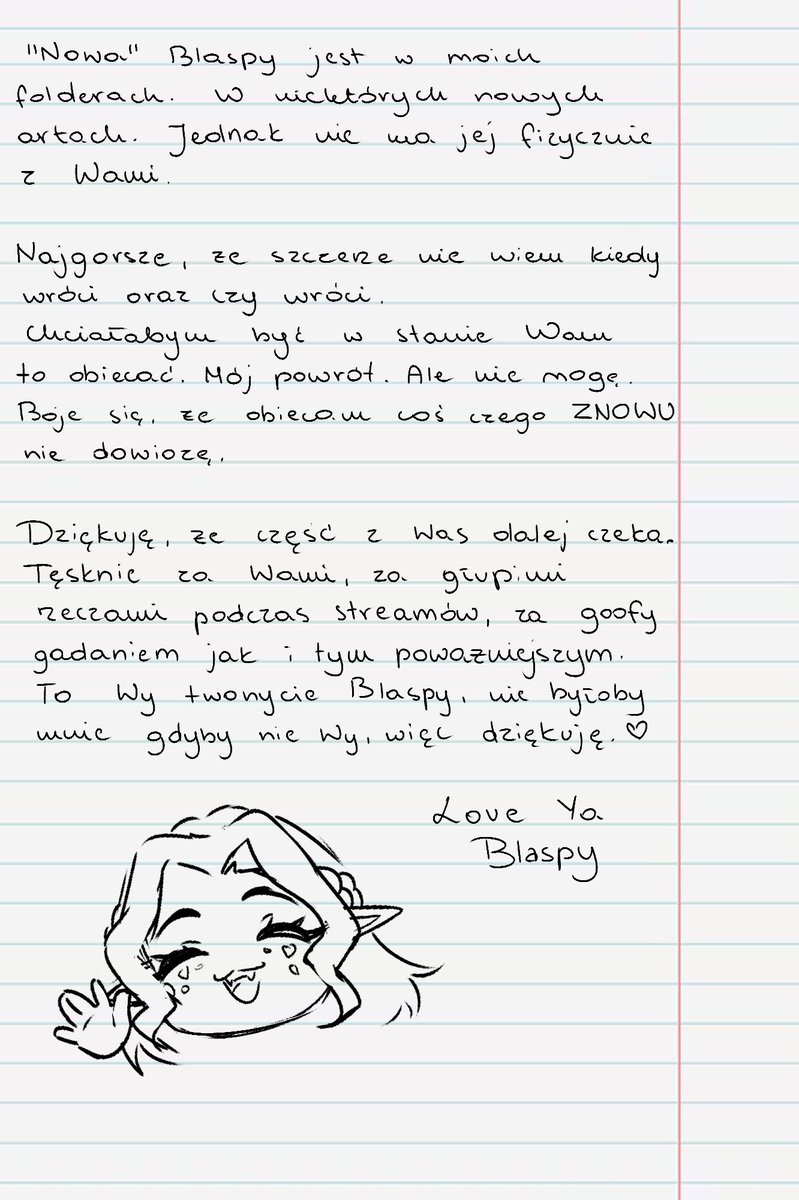 "Nowa" Blaspy jest w moich
folderach. W niektórych nowych
artach. Jednak nie ma jej fizycznie
z Wami.
Najgorsze, że szczerze nie wiem kiedy
wróci oraz czy wróci.
Chciałabym być w stanie Wam
to obiecać. Mój powrót. Ale nie mogę.
Boje się, że obiecam coś czego ZNOWU
nie dowiozę.
Dziękuję, że część z Was dalej czeka.
Tęsknie za Wami, za głupimi
rzeczami podczas streamów, za goofy
gadaniem jak i tym poważniejszym.
To Wy tworzycie Blaspy, nie byłoby
mnie gdyby nie Wy, więc dziękuję. ♡
Love Ya
Blaspy